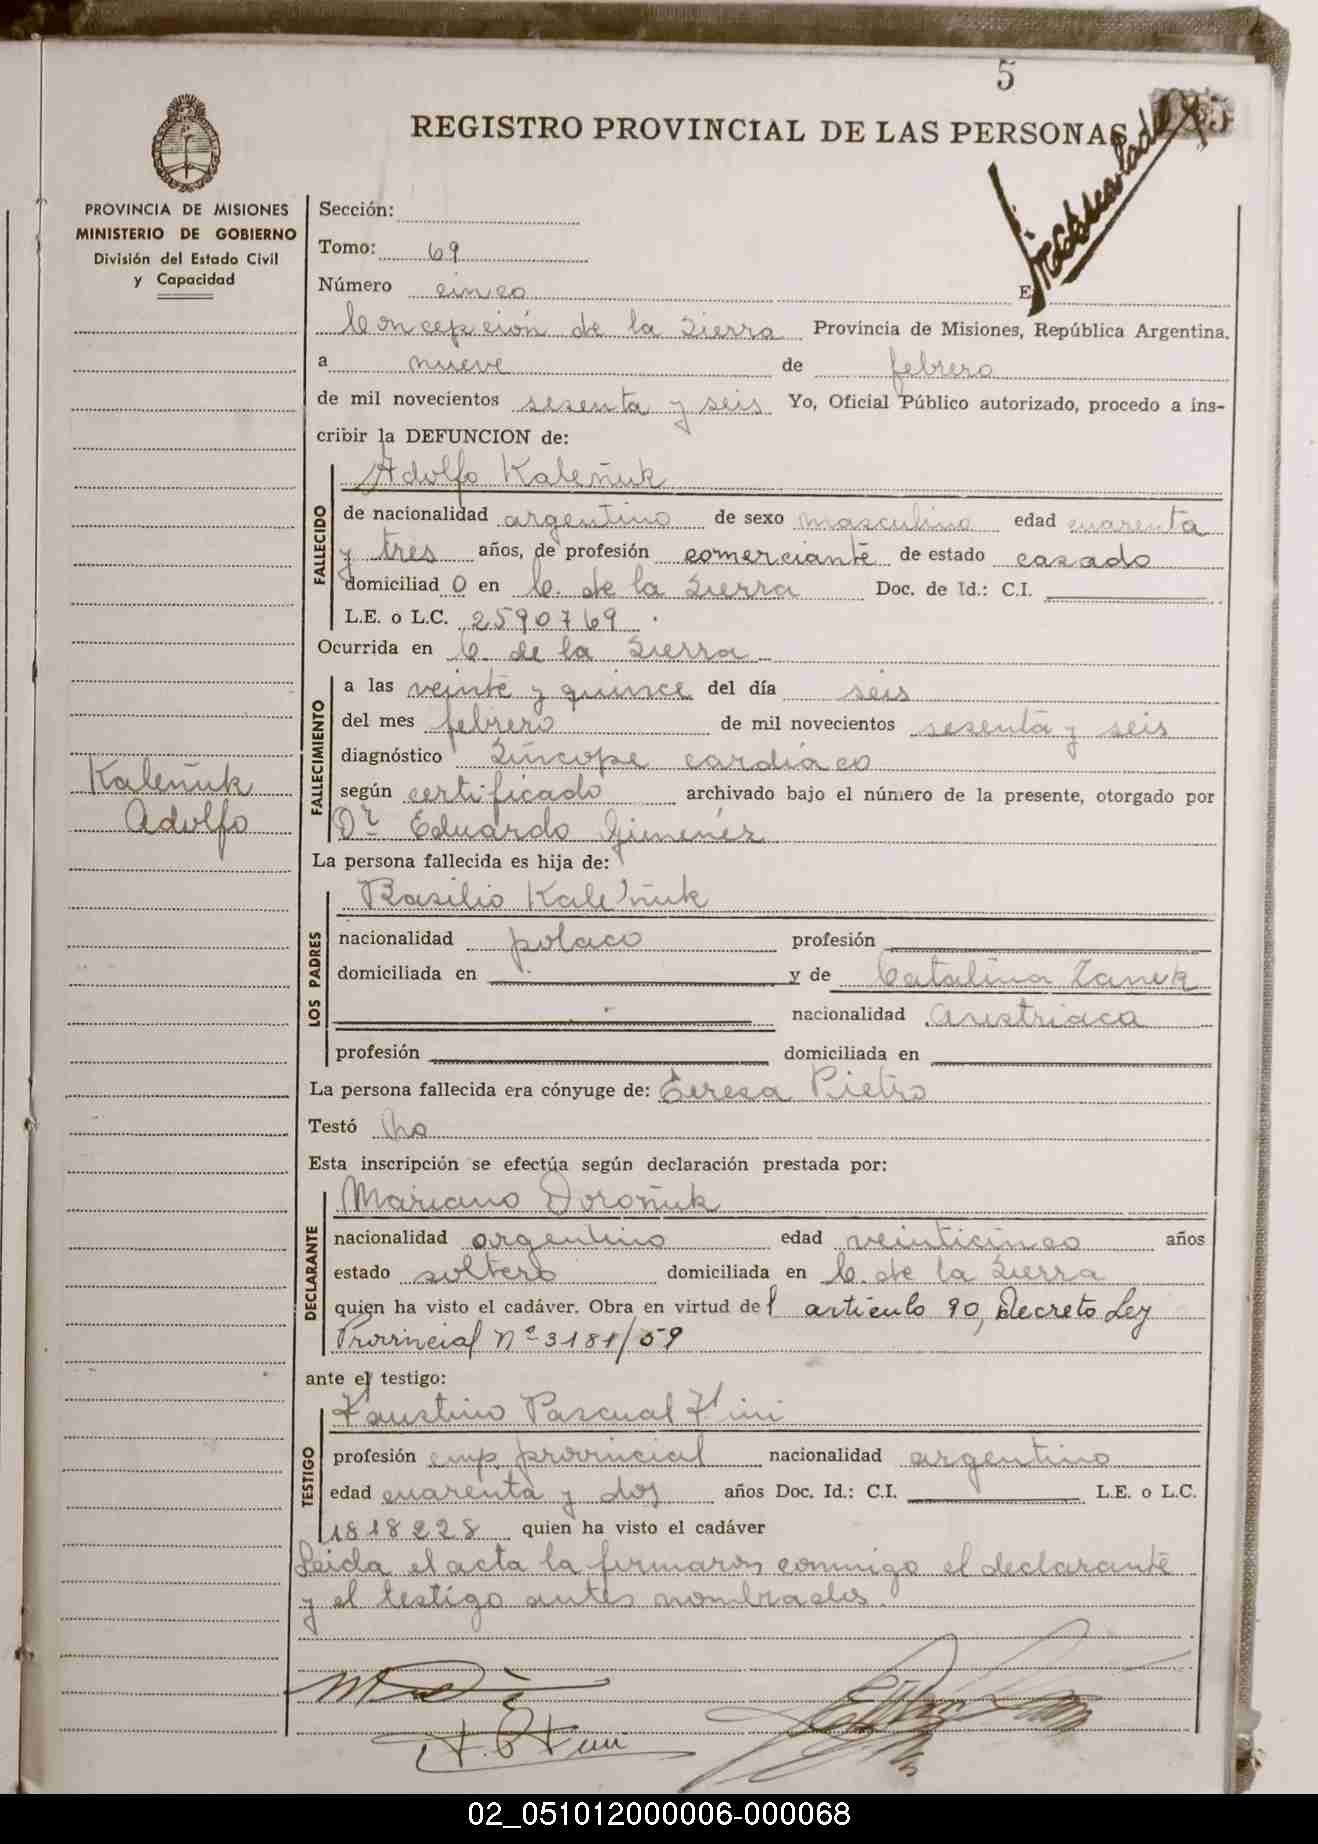 5
REGISTRO PROVINCIAL DE LAS PERSONAS
PROVINCIA DE MISIONES
MINISTERIO DE GOBIERNO
División del Estado Civil
y Capacidad
Sección:
Tomo: 69
Número cinco E
Concepción de la Sierra Provincia de Misiones, República Argentina.
a nueve de febrero
de mil novecientos sesenta y seis Yo, Oficial Público autorizado, procedo a ins-
cribir la DEFUNCION de:
FALLECIDO
Adolfo Kaleñuk
de nacionalidad argentino de sexo masculino edad cuarenta
y tres años, de profesión comerciante de estado casado
domiciliad o en C. de la Sierra Doc. de Id.: C.I.
L.E. o L.C. 2590769
Ocurrida en C. de la Sierra
FALLECIMIENTO
a las veinte y quince del día seis
del mes febrero de mil novecientos sesenta y seis
diagnóstico Síncope cardíaco
según certificado archivado bajo el número de la presente, otorgado por
Dr Eduardo Gimenez
Kaleñuk
Adolfo
La persona fallecida es hija de:
LOS PADRES
Basilio Kaleñuk
nacionalidad polaco profesión
domiciliada en y de Catalina
nacionalidad austriaca
profesión domiciliada en
La persona fallecida era cónyuge de: Teresa Pietro
Testó No
Esta inscripción se efectúa según declaración prestada por:
DECLARANTE
Mariano Doroñuk
nacionalidad argentino edad veinticinco años
estado soltero domiciliada en C. de la Sierra
quien ha visto el cadáver. Obra en virtud del artículo 90, Decreto Ley
Provincial Nº 3181/59
ante el testigo:
TESTIGO
Faustino Pascual
profesión emp. provincial nacionalidad argentino
edad cuarenta y dos años Doc. Id.: C.I. L.E. o L.C.
1818228 quien ha visto el cadáver
Leida el acta la firmaron conmigo el declarante
y el testigo antes nombrados.
02_051012000006-000068